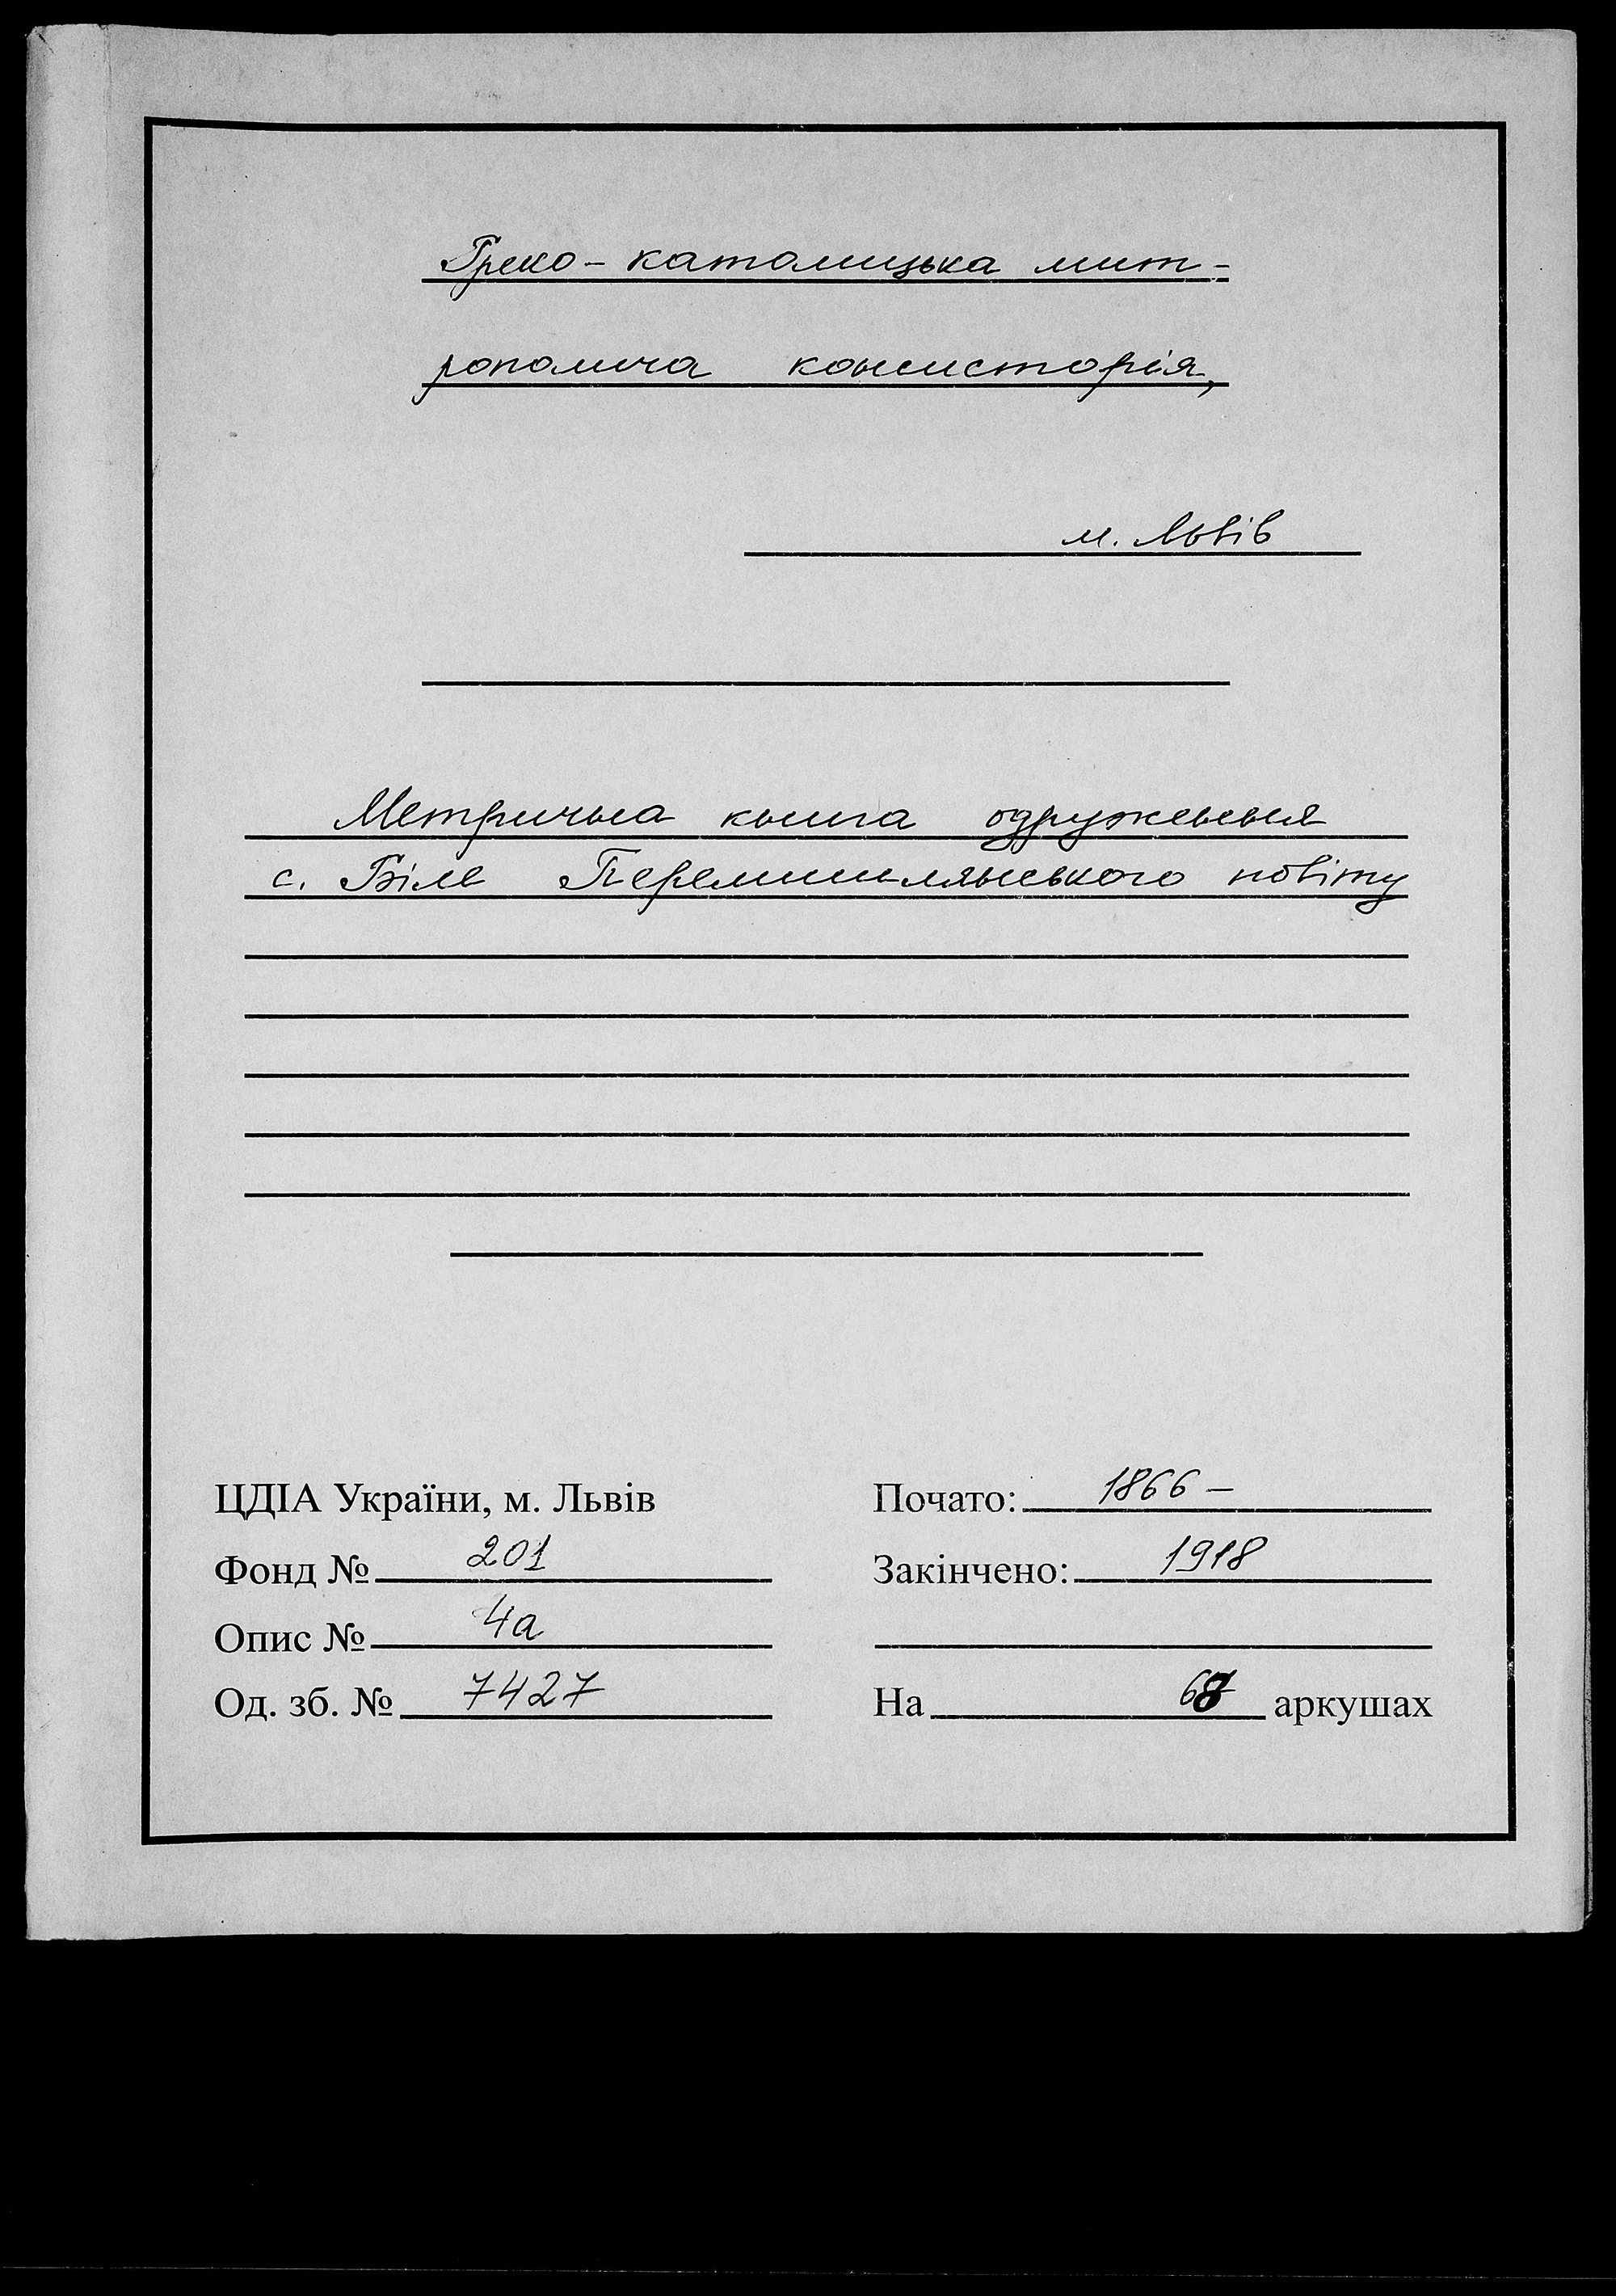 Греко-католицька мит-
рополича консисторія,
м. Львів
Метрична книга одруження
с. Біле Перемишлянського повіту
ЦДІА України, м. Львів
Почато: 1866 –
Фонд № 201
Закінчено: 1918
Опис № 4а
Од. зб. № 7427
На 68 аркушах